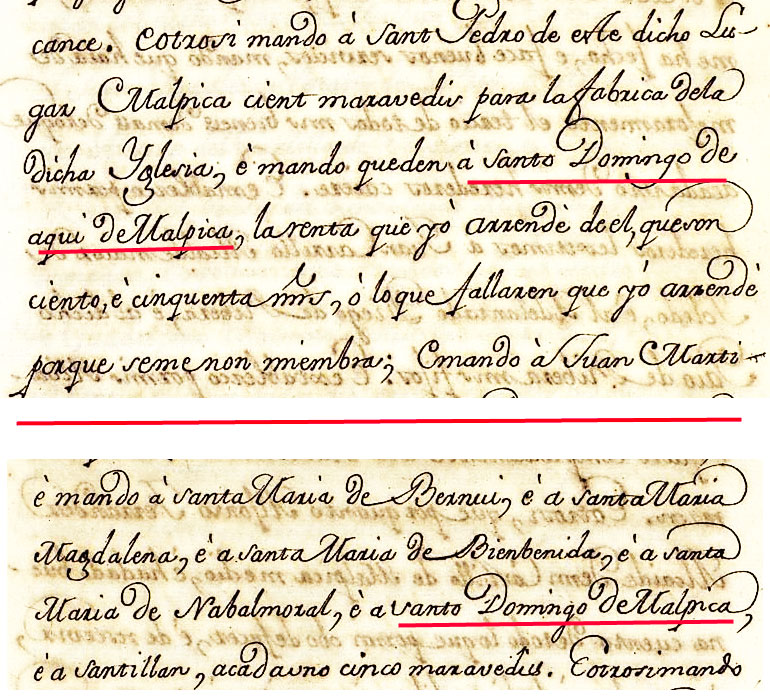 cance. Eotrosi mando à Sant Pedro de este dicho Lu-
gar Malpica cient maravedis para la fabrica dela
dicha Yglesia, è mando queden à Santo Domingo de
aqui de Malpica, la renta que yò arrendè de el, que son
ciento, è cinquenta mrs, ò lo que fallaren que yò arrendè
porque seme non miembra; Emando à Juan Marti-
è mando à Santa Maria de Bernui, è a Santa Maria
Magdalena, è a Santa Maria de Bienbenida, è a Santa
Maria de Nabalmoral, è a Santo Domingo de Malpica,
è a Santillan, acadauno cinco maravedis. Eotrosi mando